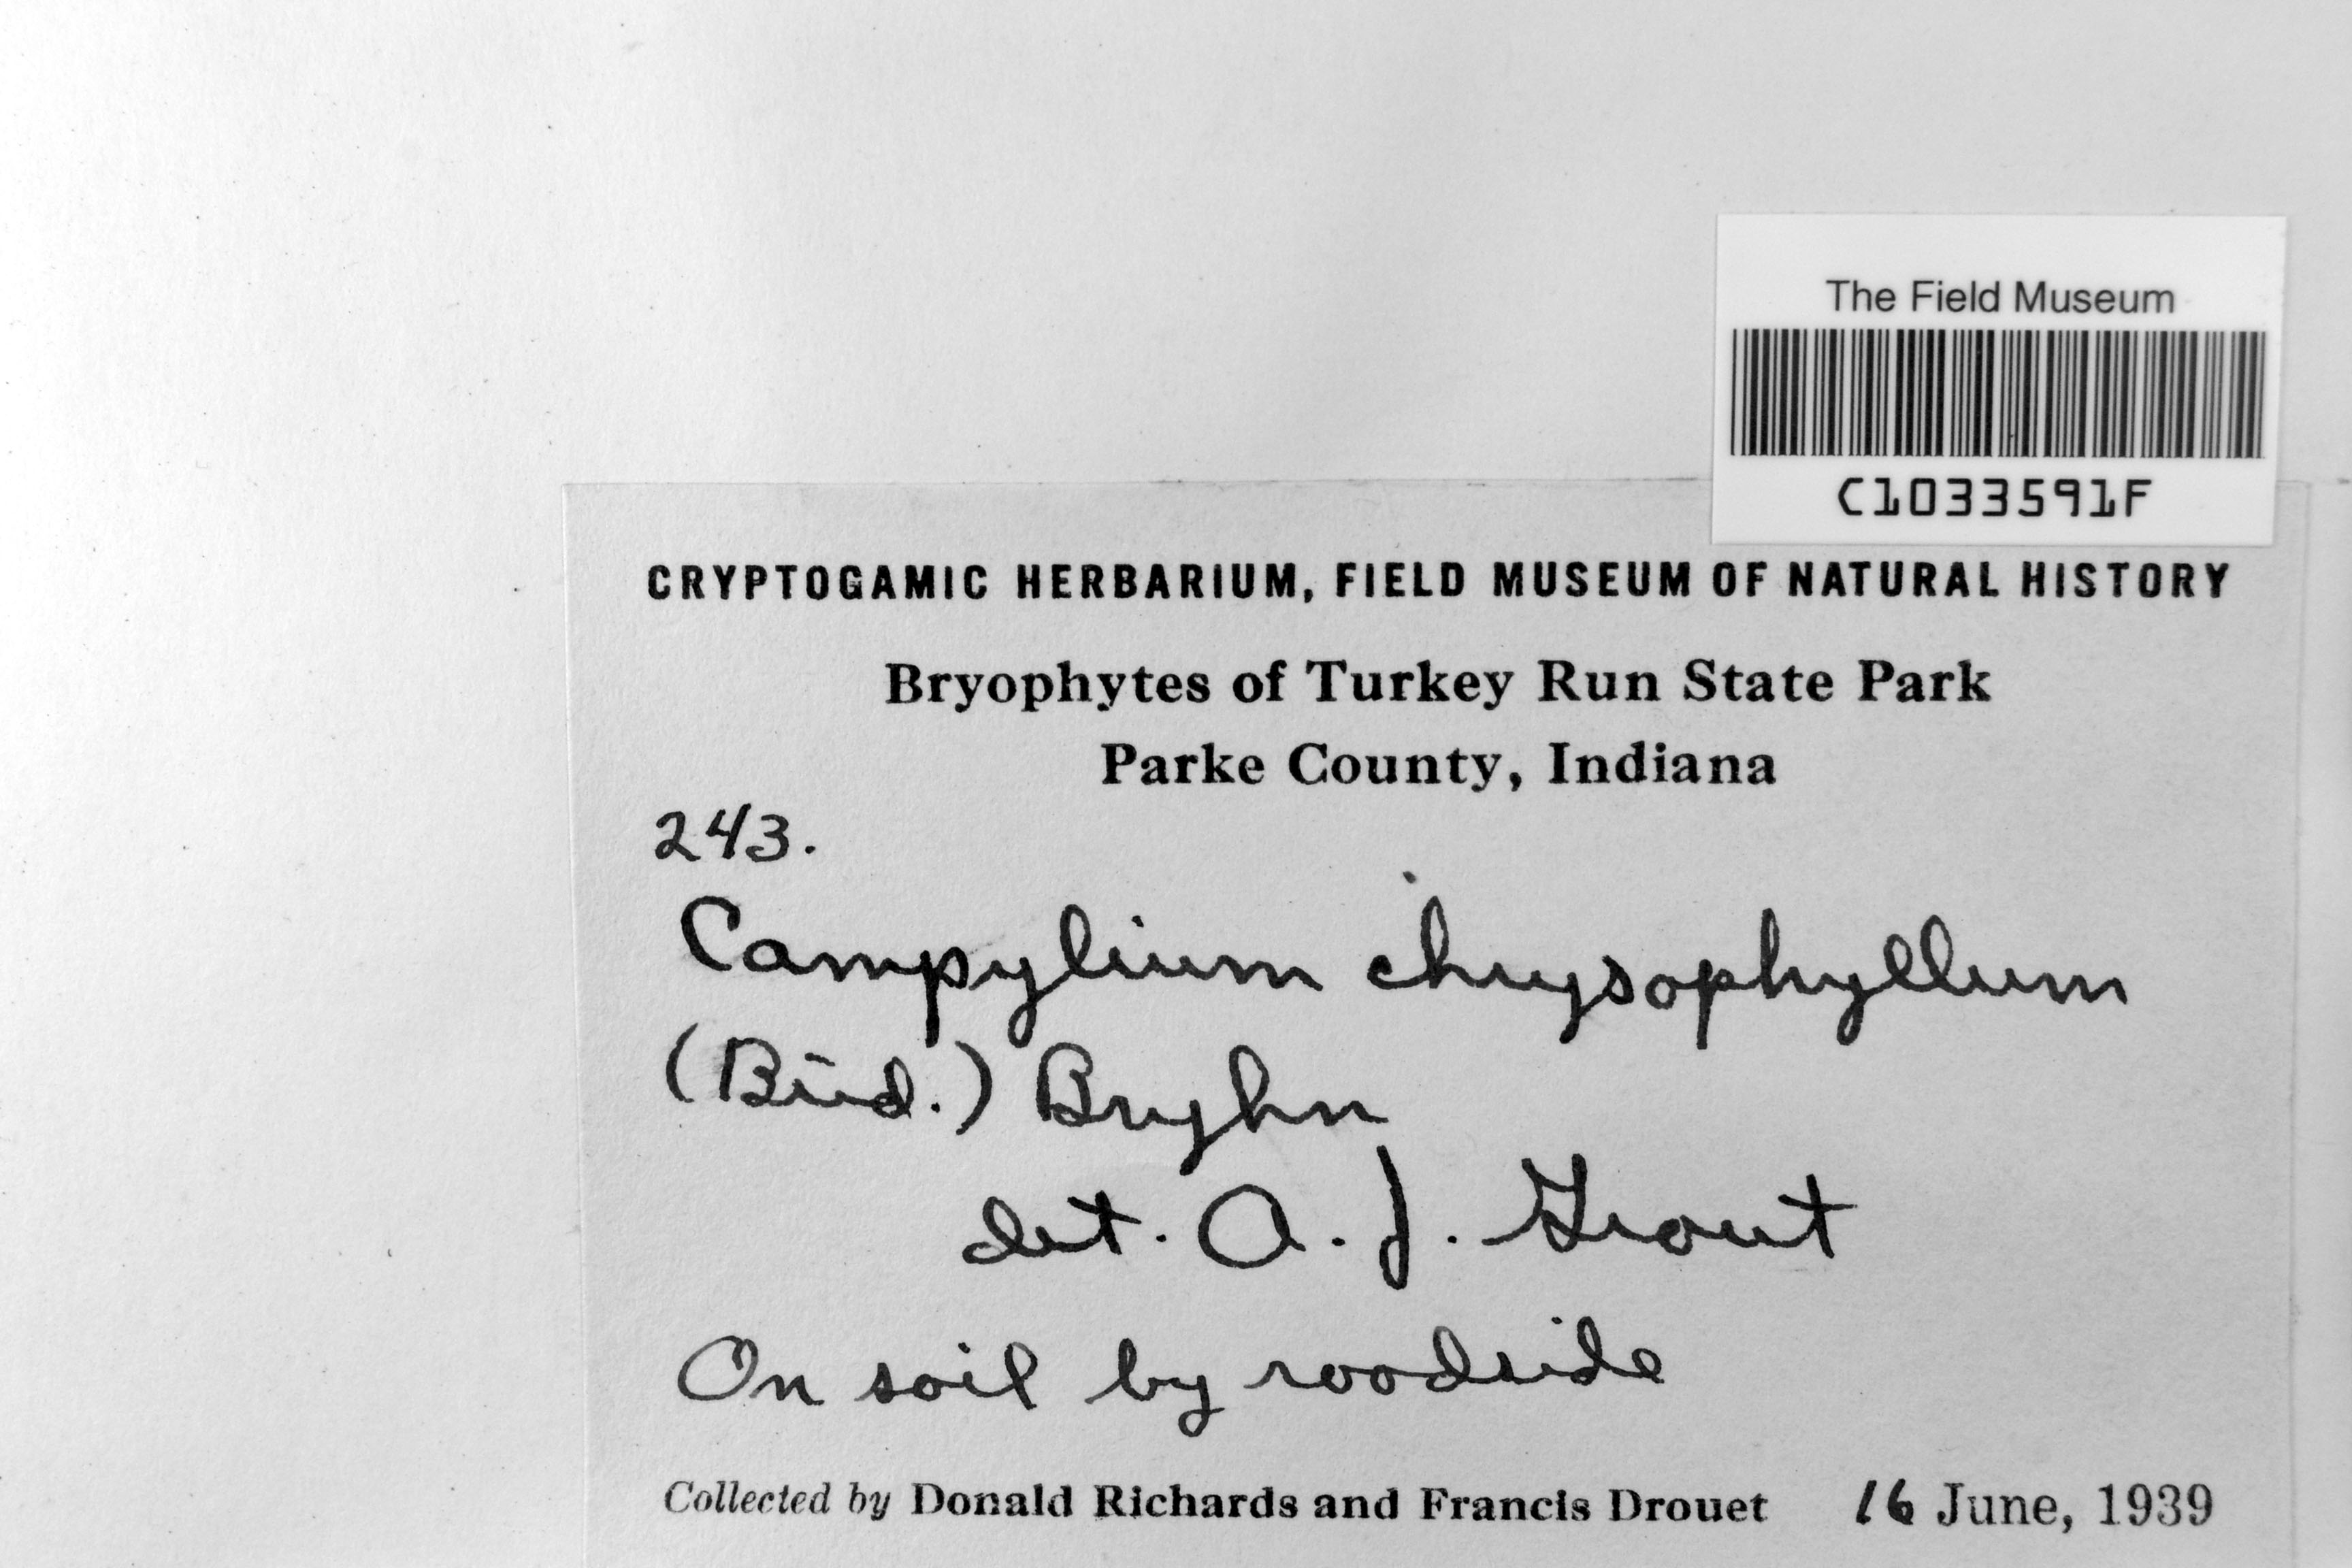 The Field Museum
C1033591F
CRYPTOGAMIC HERBARIUM, FIELD MUSEUM OF NATURAL HISTORY
Bryophytes of Turkey Run State Park
Parke County, Indiana
243.
Campylium chrysophyllum
(Brid.) Bryhn
det. A. J. Grout
On soil by roadside
Collected by Donald Richards and Francis Drouet 16 June, 1939